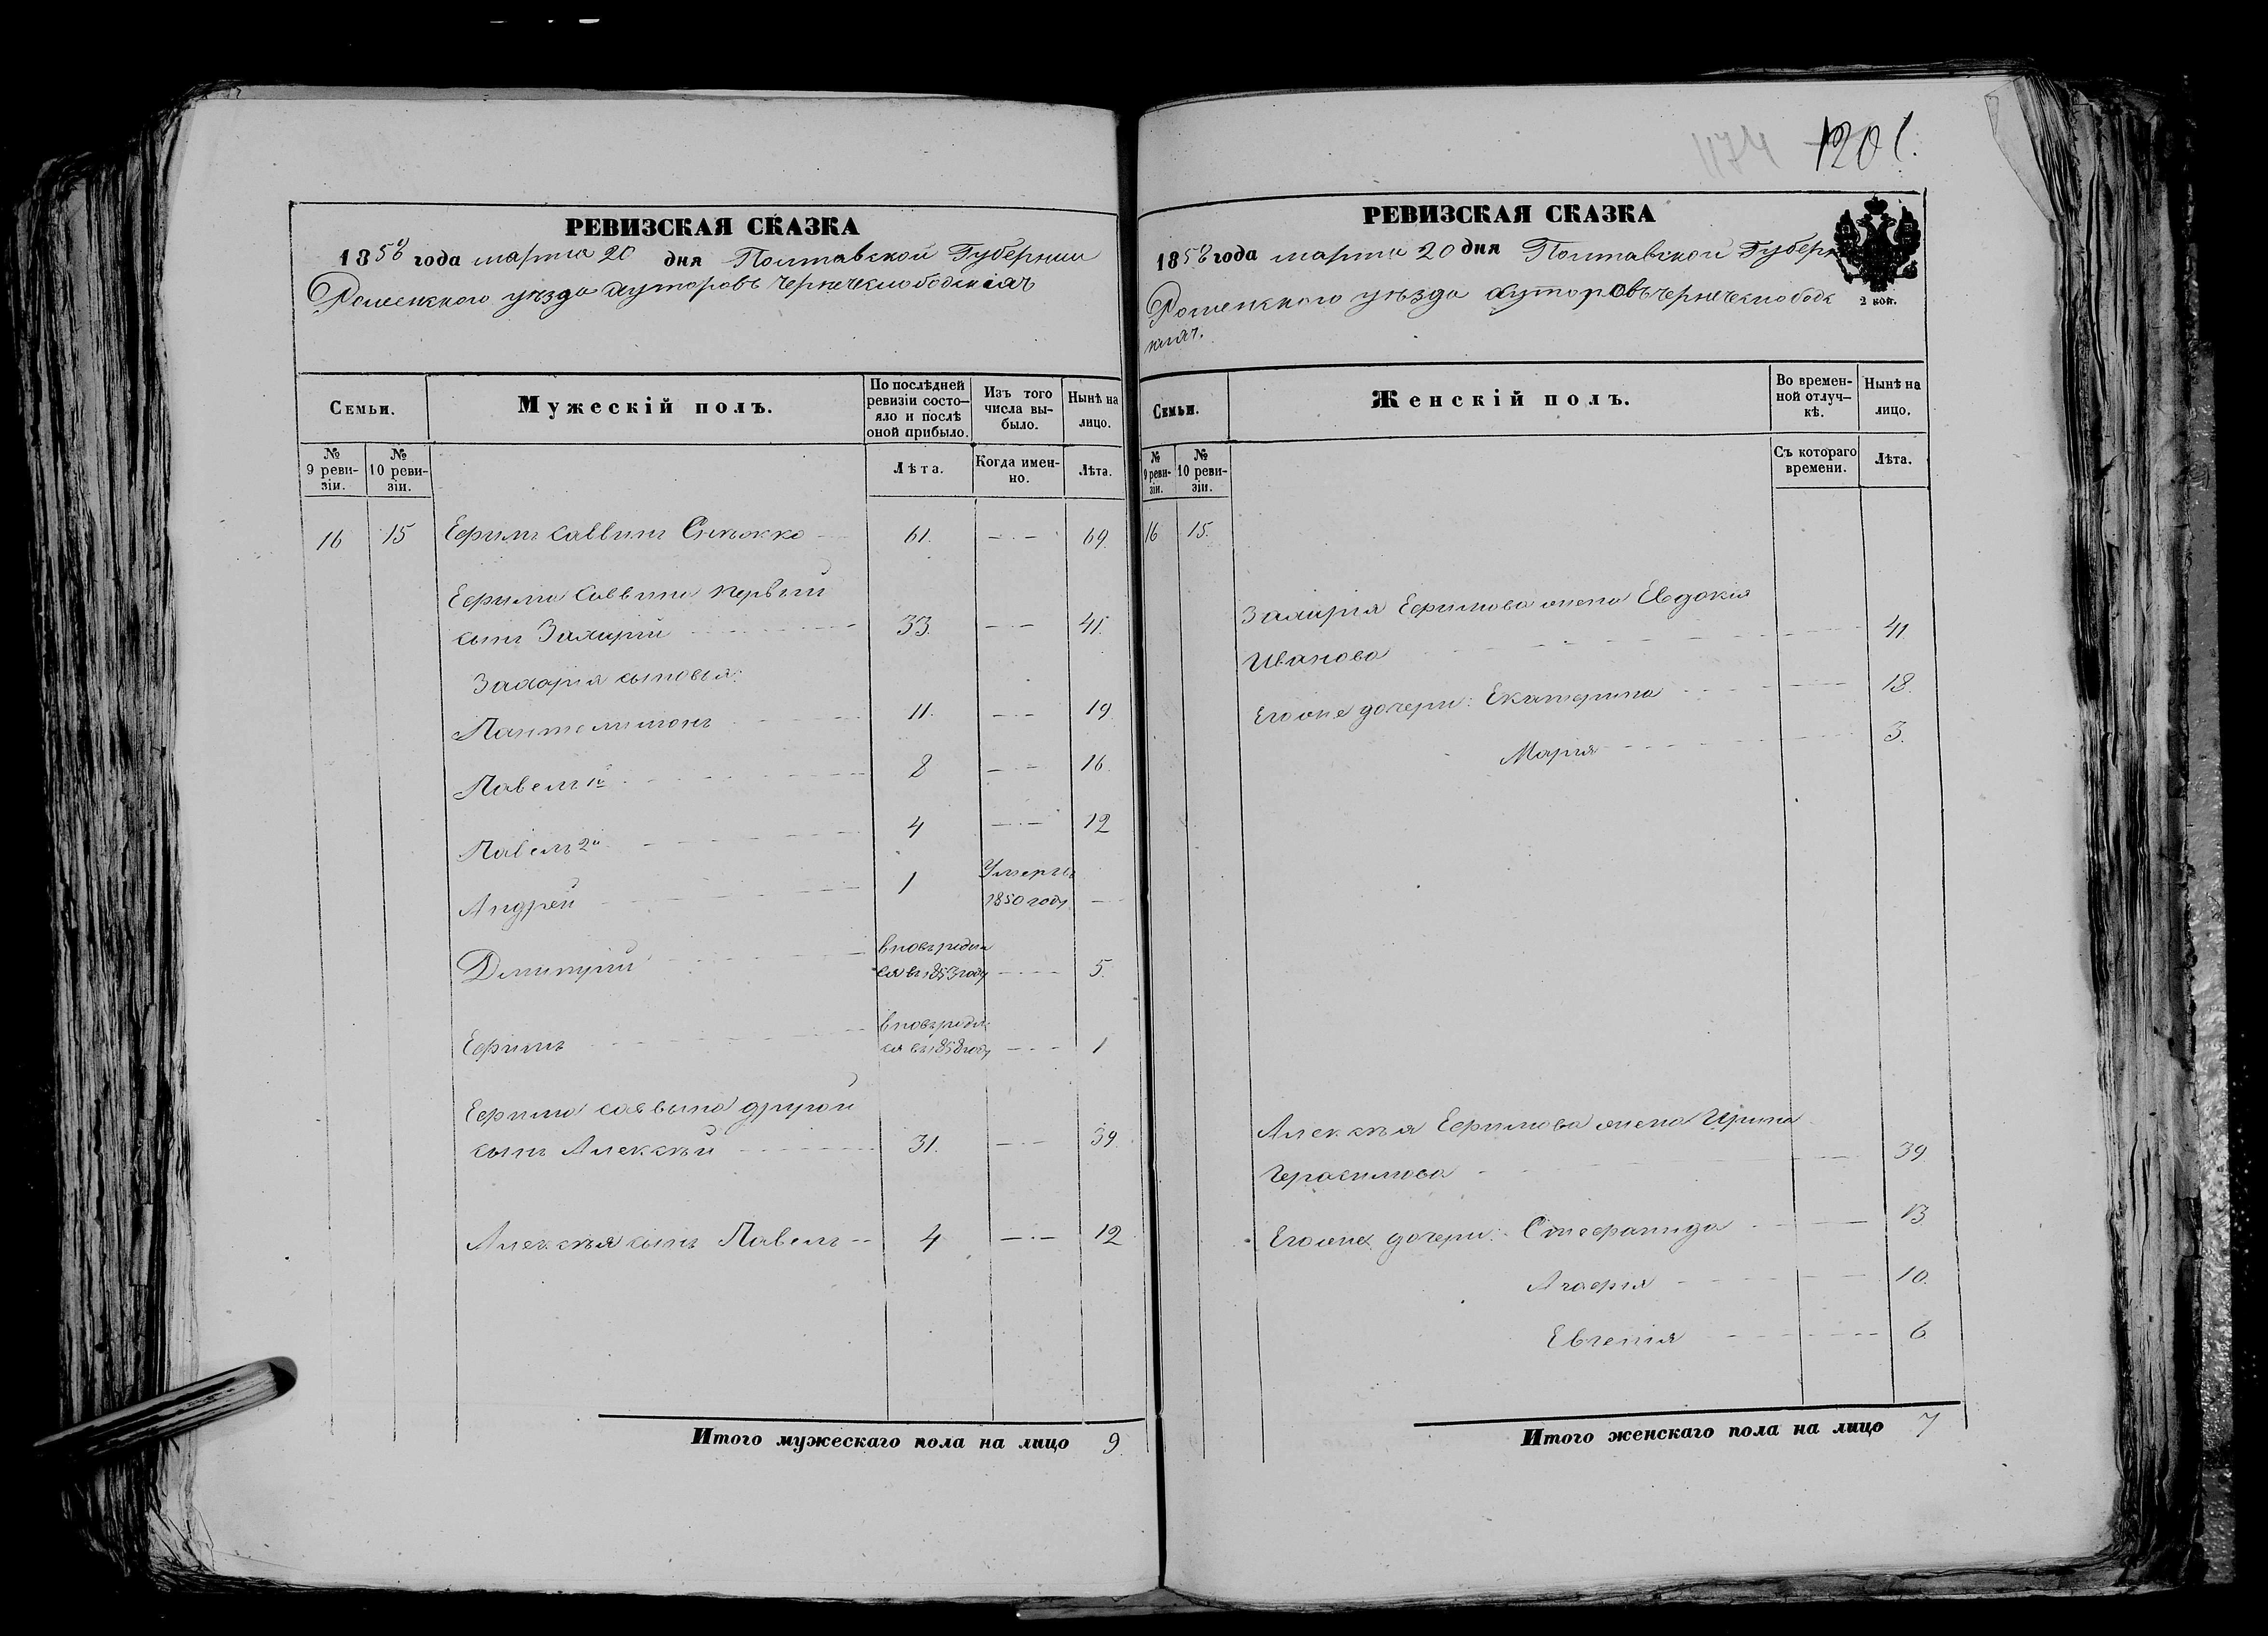 1174 1201.
РЕВИЗСКАЯ СКАЗКА
1858 года марта 20 дня Полтавской Губернии
Роменского уѣзда хуторовъ Чернечеслободскихъ
Семьи.
Мужескій полъ.
По послѣдней ревизіи состо-
яло и послѣ
оной прибыло.
Изъ того
числа вы-
было.
Нынѣ на
лицо.
№
9 реви-
зіи.
№
10 реви-
зіи.
Лѣта.
Когда имен-
но.
Лѣта.
16 15 Ефимъ Саввинъ 61. — 69.
Ефима Саввина первый
сынъ Захарій 33. — 41.
Захарія сыновья:
Пантелимонъ 11. — 19
Павелъ 1й 8 — 16.
Павелъ 2й 4 — 12
Андрей 1 Умеръ въ
1850 году —
Дмитрій вновь родил
ся въ 1853 году — 5.
Ефимъ вновь родил
ся въ 1858 году — 1
Ефима Саввына другой
сынъ Алексѣй 31. — 39.
Алексѣя сынъ Павелъ 4 — 12
Итого мужескаго пола на лицо 9
РЕВИЗСКАЯ СКАЗКА
1858 года марта 20 дня Полтавской Губерн
Роменского уѣзда хуторовъ Чернечеслободс
кихъ.
2 коп.
Семьи.
Женскій полъ.
Во времен-
ной отлуч-
кѣ.
Нынѣ на
лицо.
№
9 реви-
зіи.
№
10 реви-
зіи.
Съ котораго
времени.
Лѣта.
16 15.
Захарія Ефимова жена Евдокія
Иванова — 41.
Его же дочери: Екатерина — 18.
Марія — 3.
Алексѣя Ефимова жена Ирина
Герасимова — 39.
Его же дочери: Стефанида — 13
Агафія — 10.
Евгенія — 6
Итого женскаго пола на лицо 7